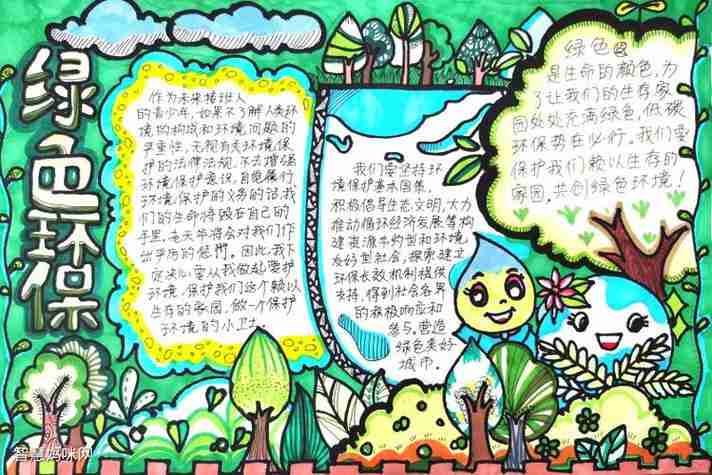 绿色环保
作为未来接班人
的青少年，如果不了解人类环
境的构成和环境问题的
严重性，无视有关环境保
护的法律法规，不去增强
环境保护意识，自觉履行
环境保护的义务的话，我
们的生命将毁在自己的
手里，老天爷将会对我们作
出严厉的惩罚。因此，我下
定决心：要从我做起要护
环境，保护我们这个赖以
生存的家园，做一个保护
环境的小卫士。
我们要坚持环
境保护基本国策，
积极倡导生态文明，大力
推动循环经济发展，等构
建资源节约型和环境
友好型社会，探索建立
环保长效机制提供
支持，得到社会各界
的积极响应和
参与。营造
绿色美好
城市。
绿色
是生命的颜色，为
了让我们的生存家
园处处充满绿色，低碳
环保势在必行。我们要
保护我们赖以生存的
家园，共创绿色环境！
智慧妈咪网